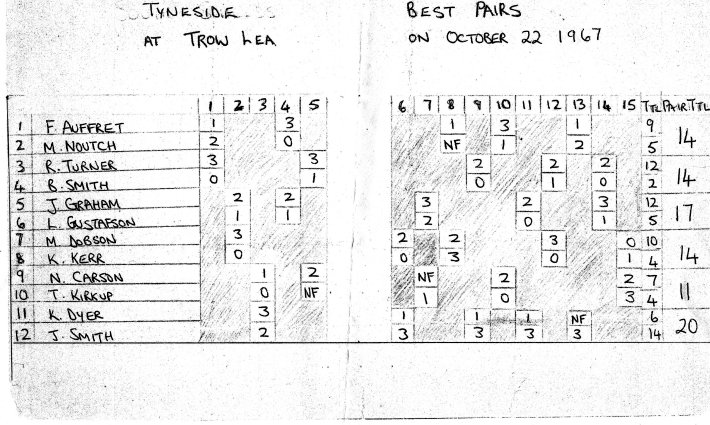 TYNESIDE BEST PAIRS
AT TROW LEA ON OCTOBER 22 1967
1 2 3 4 5 6 7 8 9 10 11 12 13 14 15 TTL PAIR TTL
1 F. AUFFRET 1 3 1 3 1 9 14
2 M. NOUTCH 2 0 NF 1 2 5
3 R. TURNER 3 3 2 2 2 12 14
4 B. SMITH 0 1 0 1 0 2
5 J. GRAHAM 2 2 3 2 3 12 17
6 L. GUSTAFSON 1 1 2 0 1 5
7 M. DOBSON 3 2 2 3 0 10 14
8 K. KERR 0 0 3 0 1 4
9 N. CARSON 1 2 NF 2 2 7 11
10 T. KIRKUP 0 NF 1 0 3 4
11 K. DYER 3 1 1 1 NF 6 20
12 J. SMITH 2 3 3 3 3 14